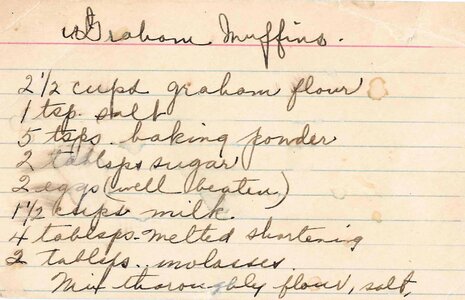 Graham Muffins.
2 1/2 cups graham flour
1 tsp. salt
5 tsps. baking powder
2 tablsps sugar
2 eggs (well beaten)
1 1/2 cups milk.
4 tablsps. melted shortening
2 tablsps. molasses
Mix thoroughly flour, salt,